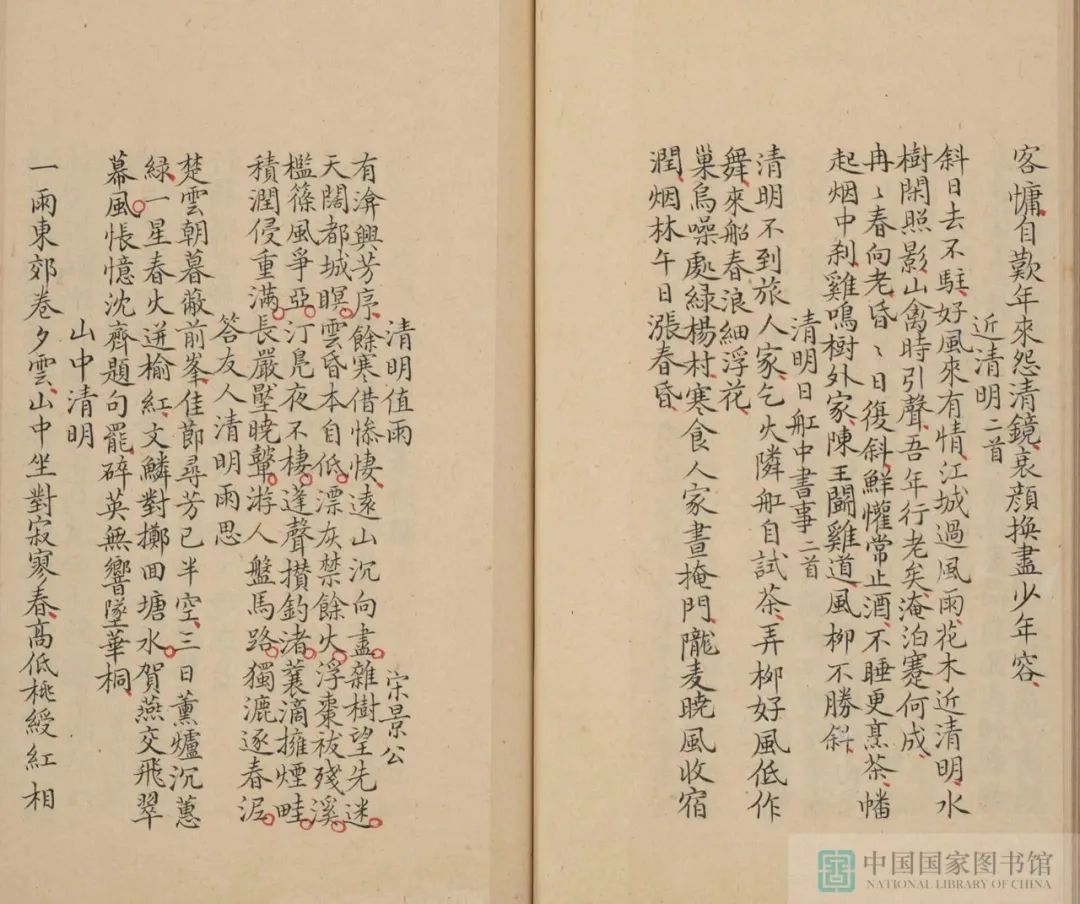 客慵自歎年來怨清鏡衰顔換盡少年容
近清明二首
斜日去不駐好風來有情江城過風雨花木近清明水
樹閑照影山禽時引聲吾年行老矣淹泊蹇何成
冉〻春向老昏〻日復斜鮮懽常止酒不睡更烹茶幡
起烟中刹雞鳴樹外家陳王鬭雞道風柳不勝斜
清明日舡中書事二首
清明不到旅人家乞火隣舡自試茶弄柳好風低作
舞來船春浪細浮花
巢烏噪處綠楊村寒食人家晝掩門隴麦曉風收宿
潤烟林午日漲春昏
清明值雨
宋景公
有渰興芳序餘寒借慘悽遠山沉向盡雜樹望先迷
天闊都城暝雲昏本自低漂灰禁餘火浮棗祓殘溪
檻篠風爭亞汀鳧夜不棲蓬聲攅釣渚蓑滴擁煙畦
積潤侵重滿長嚴壓曉鼙游人盤馬路獨漉逐春泥
答友人清明雨思
楚雲朝暮蔽前峯佳節尋芳已半空三日薰爐沉蕙
綠一星春火迸榆紅文鱗對擲回塘水賀燕交飛翠
幕風悵憶沈齊題句罷碎英無響墜華桐
山中清明
一雨東郊卷夕雲山中坐對寂寥春高低桃綬紅相
中国国家图书馆
NATIONAL LIBRARY OF CHINA